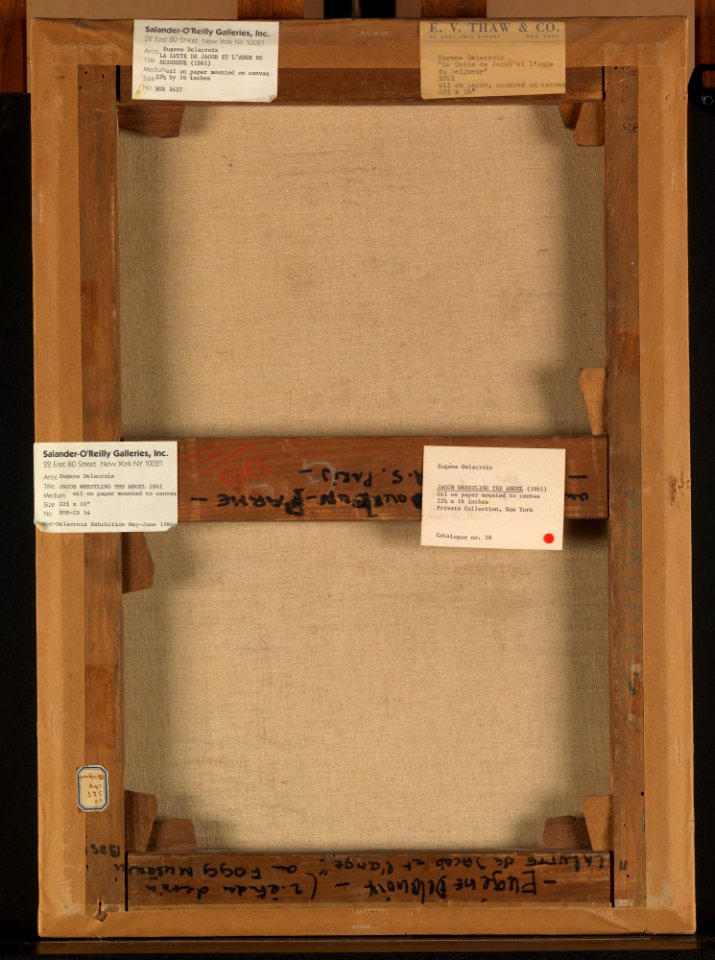 Salander-O'Reilly Galleries, Inc.
22 East 80 Street New York NY 10021
Artist Eugene Delacroix
Title LA LUTTE DE JACOB ET L'ANGE DU
SEIGNEUR (1861)
Medium oil on paper mounted on canvas
Size 22½ by 16 inches
No. BOR 3427
E. V. THAW & CO.
NEW YORK
Eugene Delacroix
"La Lutte de Jacob et l'Ange
du Seigneur"
1861
oil on paper, mounted on canvas
22½ x 16"
525
Salander-O'Reilly Galleries, Inc.
22 East 80 Street New York NY 10021
Artist Eugene Delacroix
Title JACOB WRESTLING THE ANGEL 1861
Medium oil on paper mounted to canvas
Size 22½ x 16"
No. BOR-CD 34
-Delacroix Exhibition May-June
Eugène Delacroix
JACOB WRESTLING THE ANGEL (1861)
Oil on paper mounted to canvas
22½ x 16 inches
Private Collection, New York
Catalogue no. 38
A. S. PARIS –
BOURBON-PARME –
INV
525
– Eugène Delacroix –
"La Lutte de Jacob et l'ange".
au Fogg Museum